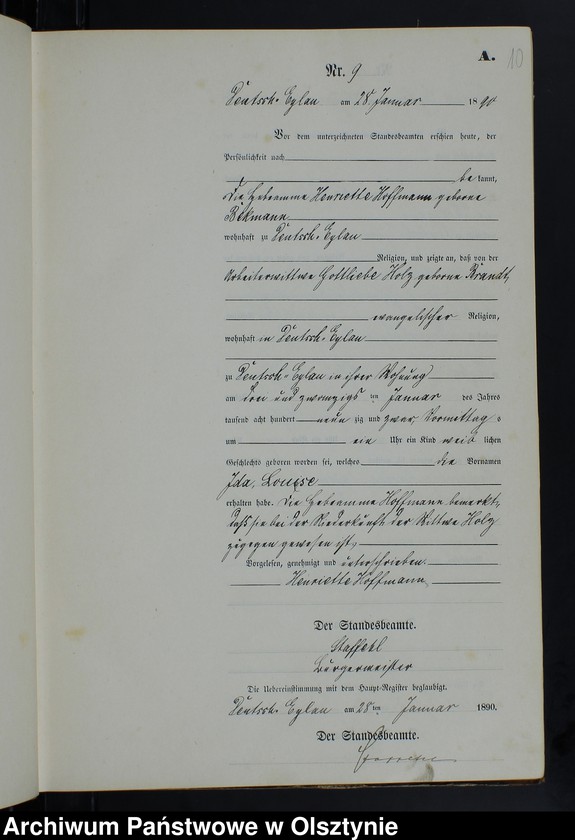 A.
10
Nr. 9
Deutsch-Eylau am 28 Januar 1890
Vor dem unterzeichneten Standesbeamten erschien heute, der
Persönlichkeit nach
be kannt,
die Hebeamme Henriette Hoffmann geborne
Bekmann
wohnhaft zu Deutsch-Eylau
Religion, und zeigte an, daß von der
Arbeiterwittwe Gottliebe Holz geborne Brandt,
evangelischer Religion,
wohnhaft in Deutsch-Eylau
zu Deutsch-Eylau in ihrer Wohnung
am drei und zwanzigs ten Januar des Jahres
tausend acht hundert neun zig und zwar Vormittag s
um ein Uhr ein Kind weib lichen
Geschlechts geboren worden sei, welches die Vornamen
Ida, Louise
erhalten habe. Die Hebeamme Hoffmann bemerkt,
daß sie bei der Niederkunft der Wittwe Holz
zugegen gewesen ist,
Vorgelesen, genehmigt und unterschrieben.
Henriette Hoffmann
Der Standesbeamte.
Staffehl
Bürgermeister
Die Uebereinstimmung mit dem Haupt-Register beglaubigt.
Deutsch-Eylau am 28 ten Januar 1890.
Der Standesbeamte.
Archiwum Państwowe w Olsztynie